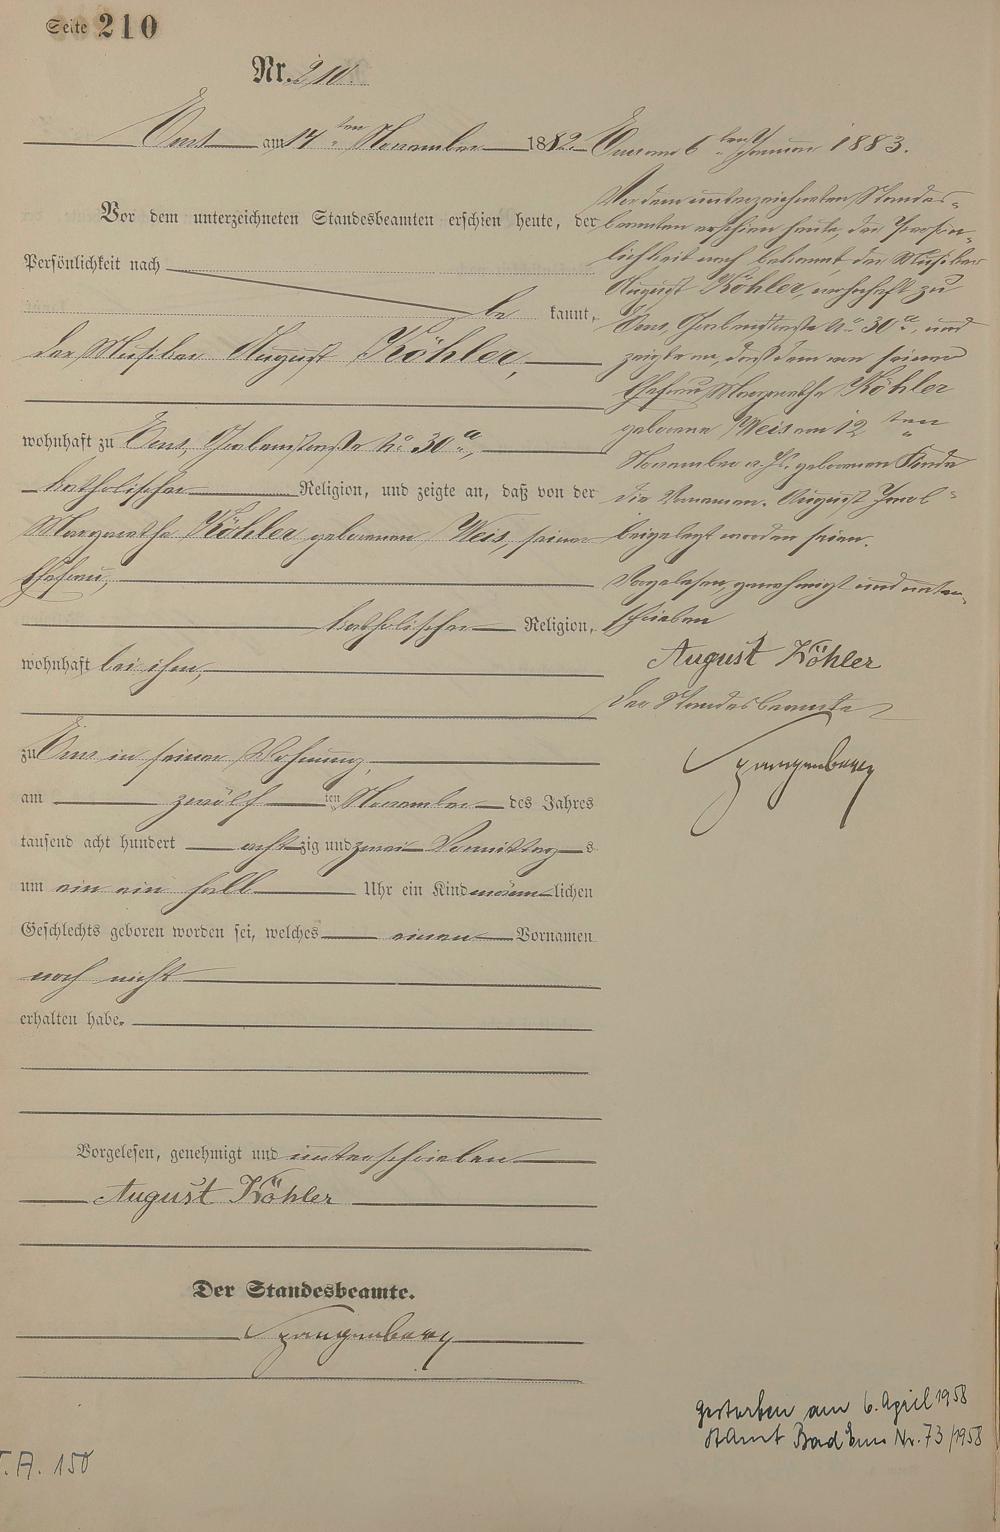 Seite 210
Nr. 210.
Ems am 14ten November 1882.
Vor dem unterzeichneten Standesbeamten erschien heute, der
Persönlichkeit nach
be kannt,
der Musiker August Köhler,
wohnhaft zu Ems, Grabenstraße No 30a,
katholischer Religion, und zeigte an, daß von der
Margarethe Köhler geborenen Weis, seiner
Ehefrau,
katholischer Religion,
wohnhaft bei ihm,
zu Ems in seiner Wohnung,
am zwölf ten November des Jahres
tausend acht hundert acht zig und zwei Vormittag s
um ein ein halb Uhr ein Kind männ lichen
Geschlechts geboren worden sei, welches einen Vornamen
noch nicht
erhalten habe.
Vorgelesen, genehmigt und unterschrieben
August Köhler
Der Standesbeamte.
Spangenberg
Ems am 6ten Januar 1883.
Vor dem unterzeichneten Standes-
beamten erschien heute, der Persön-
lichkeit nach bekannt der Musiker
August Köhler, wohnhaft zu
Ems, Grabenstraße No 30a, und
zeigte an, daß dem von seiner
Ehefrau Margarethe Köhler
geborene Weis am 12ten
November v. Js. geborenen Kinde
die Vornamen August Jacob
beigelegt worden seien.
Vorgelesen, genehmigt und unter-
schrieben
August Köhler
Der Standesbeamte
Spangenberg
gestorben am 6. April 1958
StAmt Bad Ems Nr. 73/1958
T. A. 150